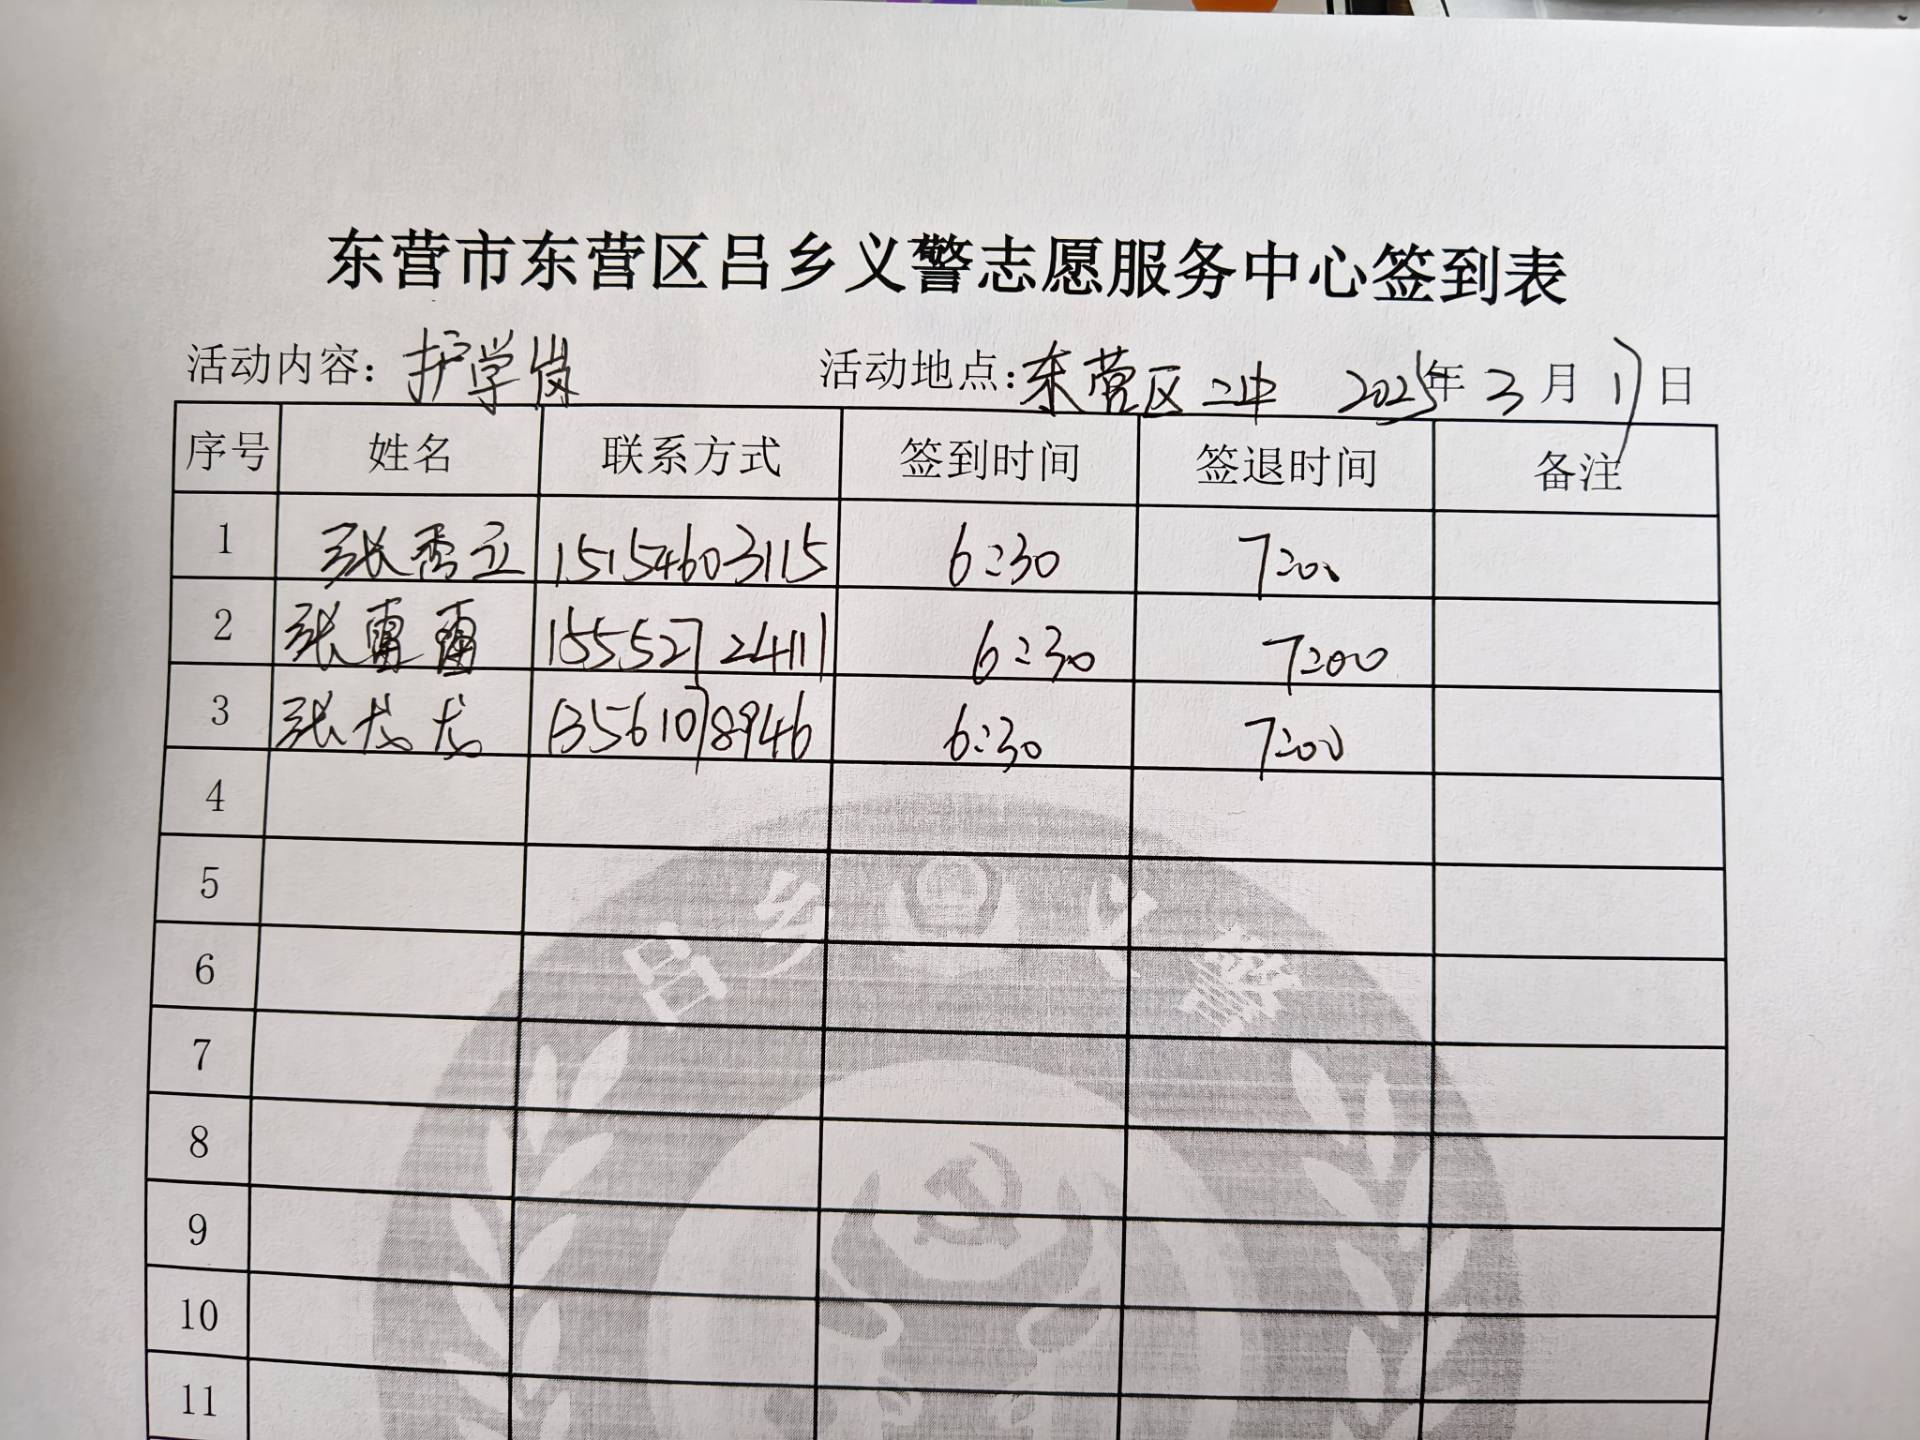 东营市东营区吕乡义警志愿服务中心签到表
活动内容：护学岗 活动地点：东营区二中 2025年3月17日
序号 姓名 联系方式 签到时间 签退时间 备注
1 张秀立 15154603115 6:30 7:00
2 张雷雷 15552724111 6:30 7:00
3 张龙龙 13561078946 6:30 7:00
4
5
6
7
8
9
10
11
吕乡义警